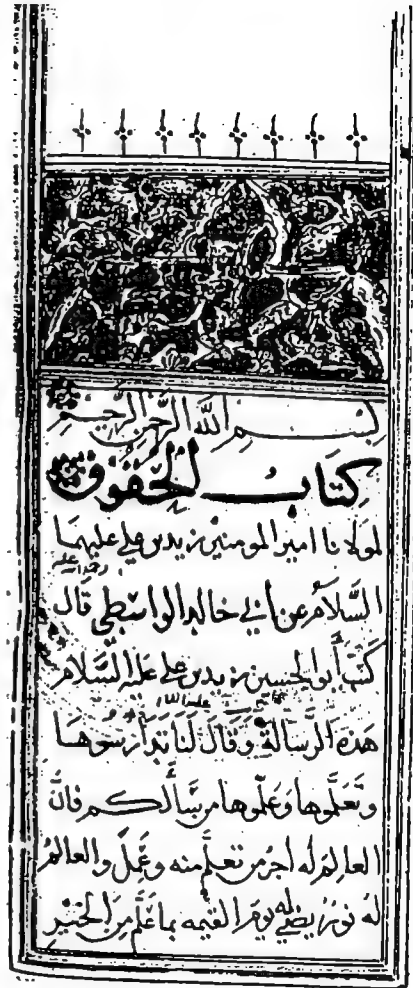 بسم الله الرحمن الرحيم
كتاب الحقوق
لمولانا امير المومنين زيد بن علي عليهما
رحمة الله
السلام عن أبي خالد الواسطي قال
كتب أبو الحسين زيد بن علي عليه السلام
عليهما السلام
هذه الرسالة وقال لنا تدارسوها
وتعلموها وعلموها من سألكم فان
العالم له أجر من تعلم منه وعمل والعالم
له نور يضي له يوم القيمه بما علم من الخير